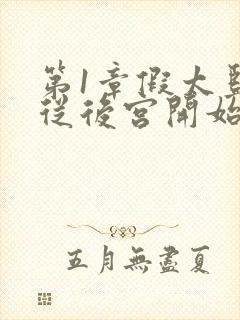 第1章假太
從後宮開始
五月無盡夏